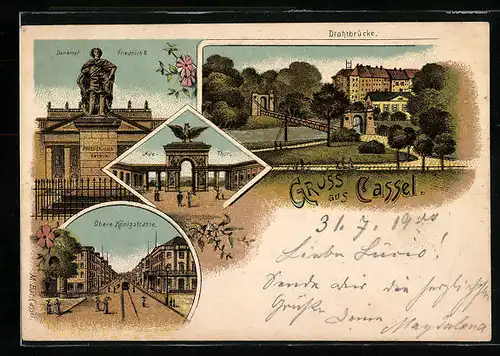 Drahtbrücke.
Denkmal Friedrich II.
Aue - Thor.
Gruss
aus Cassel.
Obere Königsstrasse.
31. 7. 1900
Liebe
Sende Dir die herzlichsten
Grüße Deine Magdalena